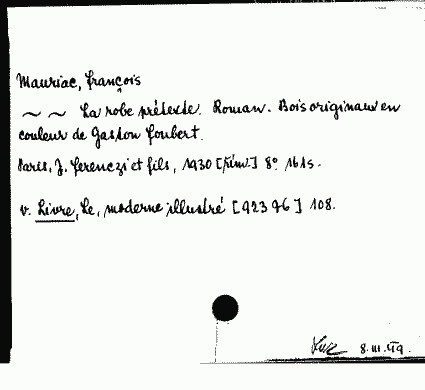 Mauriac, François
~ ~ La robe prétexte. Roman. Bois originaux en
couleur de Gaston Joubert.
Paris, J. Ferenczi et fils, 1930 [kim.] 8° 161 s.
v. Livre, Le, moderne illustré [923 96] 108.
8.III.49.